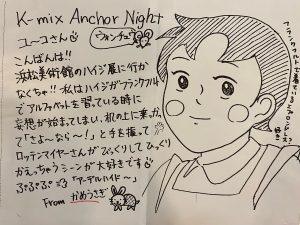 K-mix Anchor Night
ユーコさん
ウォンチュ
こんばんは!!
浜松美術館のハイジ展に行か
なくちゃ!! 私はハイジがフランクフルト
でアルファベットを習っている時に
妄想が始まってしまい、机の上に乗っか
って「さよ〜なら〜!」と手を振って
ロッテンマイヤーさんがビックリしてひっくり
かえっちゃうシーンが大好きです
ぷぷぷぷ 「アーデルハイド〜」
From かめうさぎ
フランクフルトで着ている